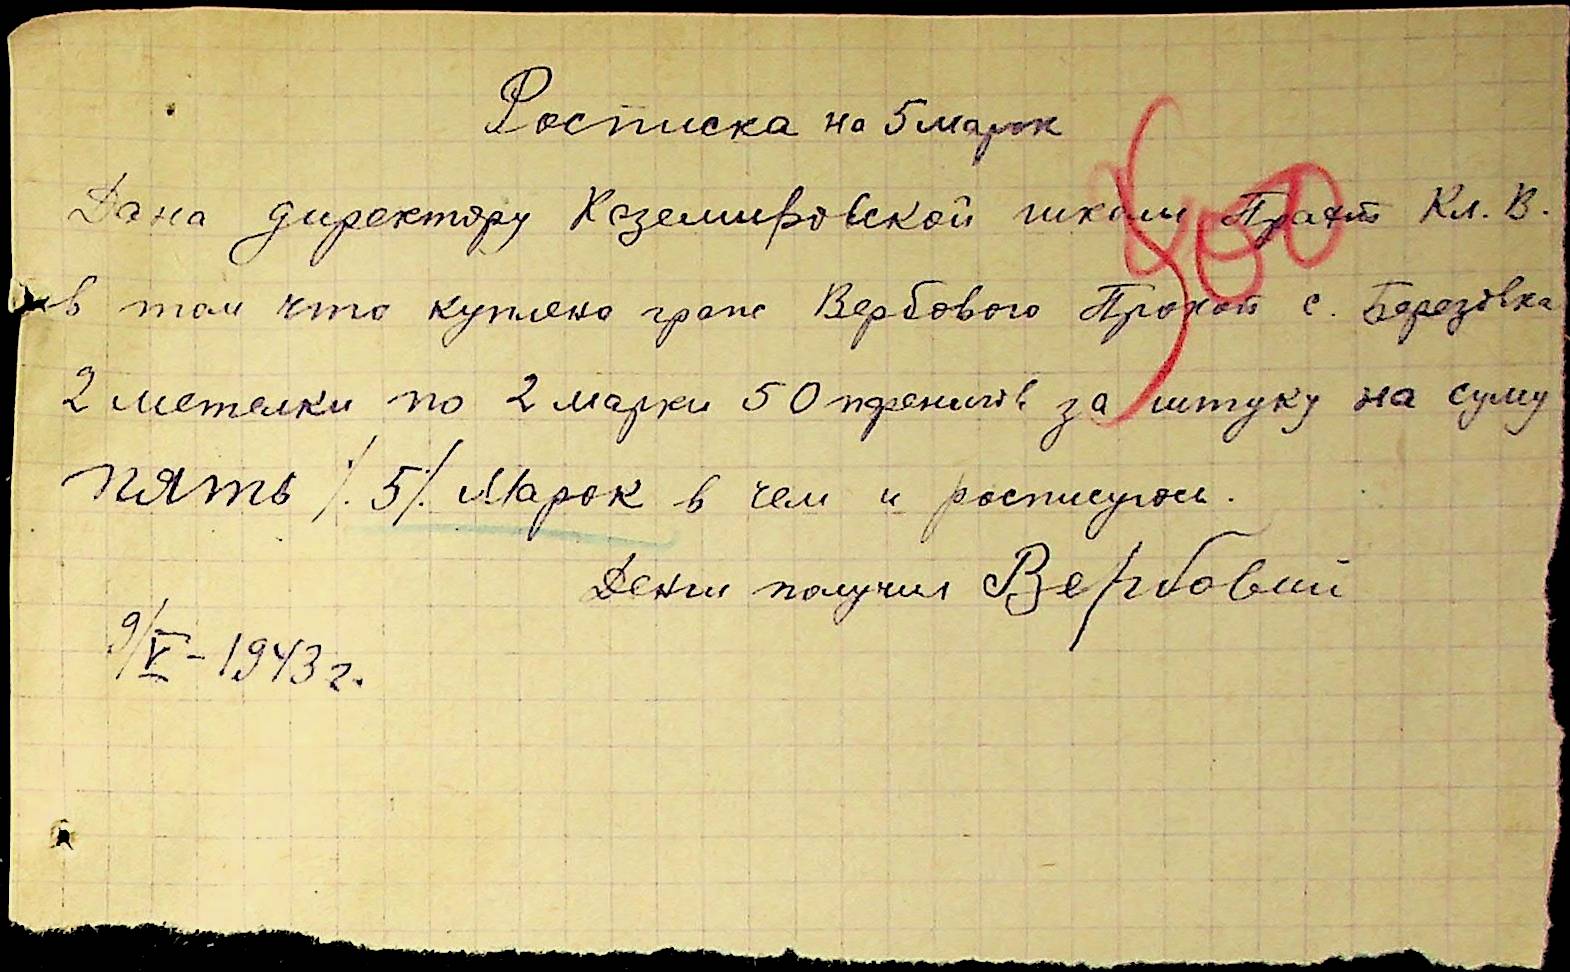 Росписка на 5 марок
Дана директору Кземировской школы Прахт Кл. В.
в том что куплено граж Вербового Прокоп с. Березовка
2 метелки по 2 марки 50 пфенигов за штуку на суму
пять /. 5 /. Марок в чем и росписуюсь.
Деньги получил Вербовий
9/V - 1943 г.